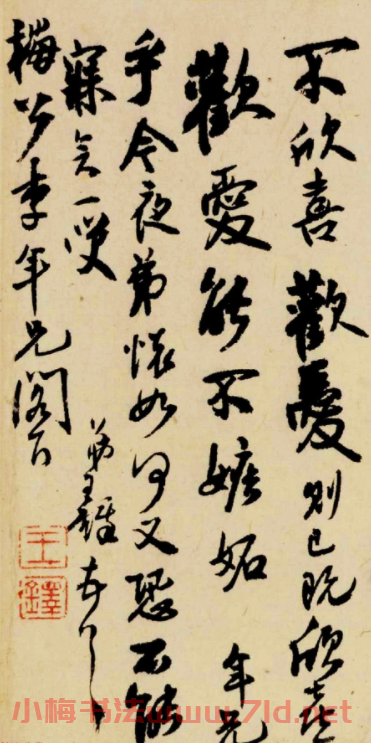 不欣喜歡愛則已既欣喜
歡愛能不嫉妬 年兄
乎今夜弟懷如何又恐不能
寐矣一噱
梅公李年兄閣下
弟王鐸
王鐸
小梅书法www.7ld.net